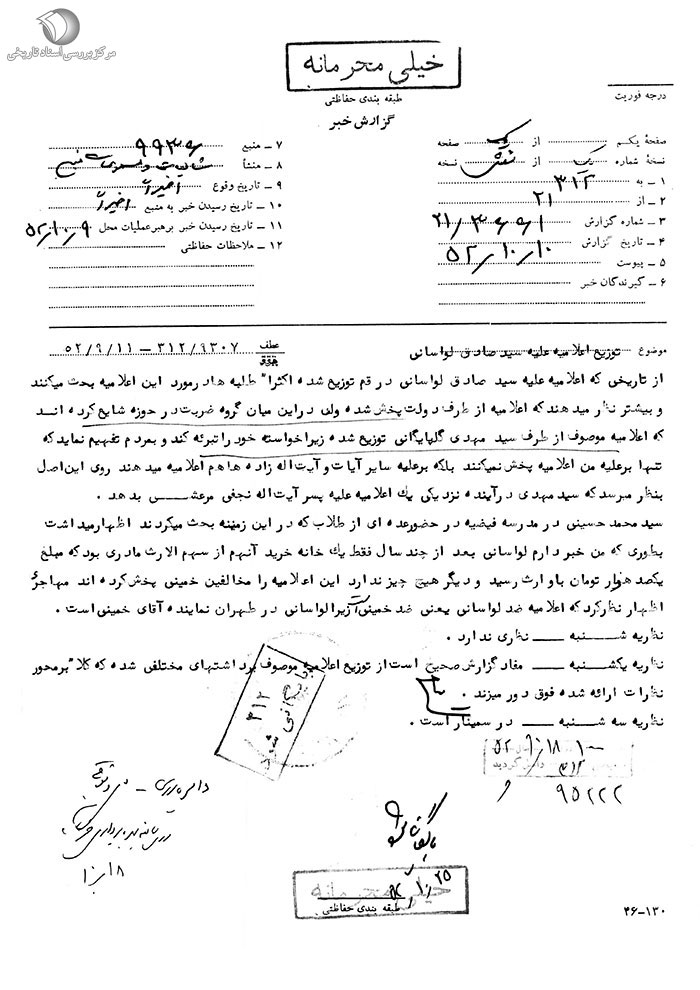 مرکز بررسی اسناد تاریخی
خیلی محرمانه
طبقه بندی حفاظتی
گزارش خبر
درجه فوریت
صفحهٔ یکم از یک صفحه
نسخهٔ شماره یک از شش نسخه
۱ – به ۳۱۲
۲ – از ۲۱
۳ – شماره گزارش ۲۱/۳۶۶۱
۴ – تاریخ گزارش ۵۲/۱۰/۱۰
۵ – پیوست
۶ – گیرندگان خبر
۷ – منبع ۹۹۳۶
۸ – منشأ
۹ – تاریخ وقوع اخیراً
۱۰ – تاریخ رسیدن خبر به منبع اخیراً
۱۱ – تاریخ رسیدن خبر برهبر عملیات محل ۵۲/۱۰/۹
۱۲ – ملاحظات حفاظتی
موضوع توزیع اعلامیه علیه سید صادق لواسانی عطف ۳۱۲/۹۳۰۷ – ۵۲/۹/۱۱
از تاریخی که اعلامیه علیه سید صادق لواسانی در قم توزیع شده اکثراً طلبه ها در مورد این اعلامیه بحث میکنند
و بیشتر نظر میدهند که اعلامیه از طرف دولت پخش شده ولی در این میان گروه ضربت در حوزه شایع کرده اند
که اعلامیه موصوف از طرف سید مهدی گلپایگانی توزیع شده زیرا خواسته خود را تبرئه کند و بمردم تفهیم نماید که
تنها برعلیه من اعلامیه پخش نمیکنند بلکه برعلیه سایر آیات و آیت اله زاده ها هم اعلامیه میدهند روی این اصل
بنظر میرسد که سید مهدی در آینده نزدیکی یك اعلامیه علیه پسر آیت اله نجفی مرعشی بدهد .
سید محمد حسینی در مدرسه فیضیه در حضور عده ای از طلاب که در این زمینه بحث میکردند اظهار میداشت
بطوری که من خبر دارم لواسانی بعد از چند سال فقط یك خانه خرید آنهم از سهم الارث مادری بود که مبلغ
یکصد هزار تومان با و ارث رسید و دیگر هیچ چیز ندارد این اعلامیه را مخالفین خمینی پخش کرده اند مهاجر
اظهار نظر کرد که اعلامیه ضد لواسانی یعنی ضد خمینی است زیرا لواسانی در طهران نماینده آقای خمینی است .
نظریه شنبه — نظری ندارد .
نظریه یکشنبه — مفاد گزارش صحیح است از توزیع اعلامیه موصوف برداشتهای مختلفی شده که کلاً بر محور
نظرات ارائه شده فوق دور میزند .
نظریه سه شنبه — در سمینار است .
بایگانی شود
۳۱۲
۹۵۲۲۲
بایگانی شود
۱۰/۲۵
۱۰/۱۸
خیلی محرمانه
طبقه بندی حفاظتی
۴۶-۱۳۰